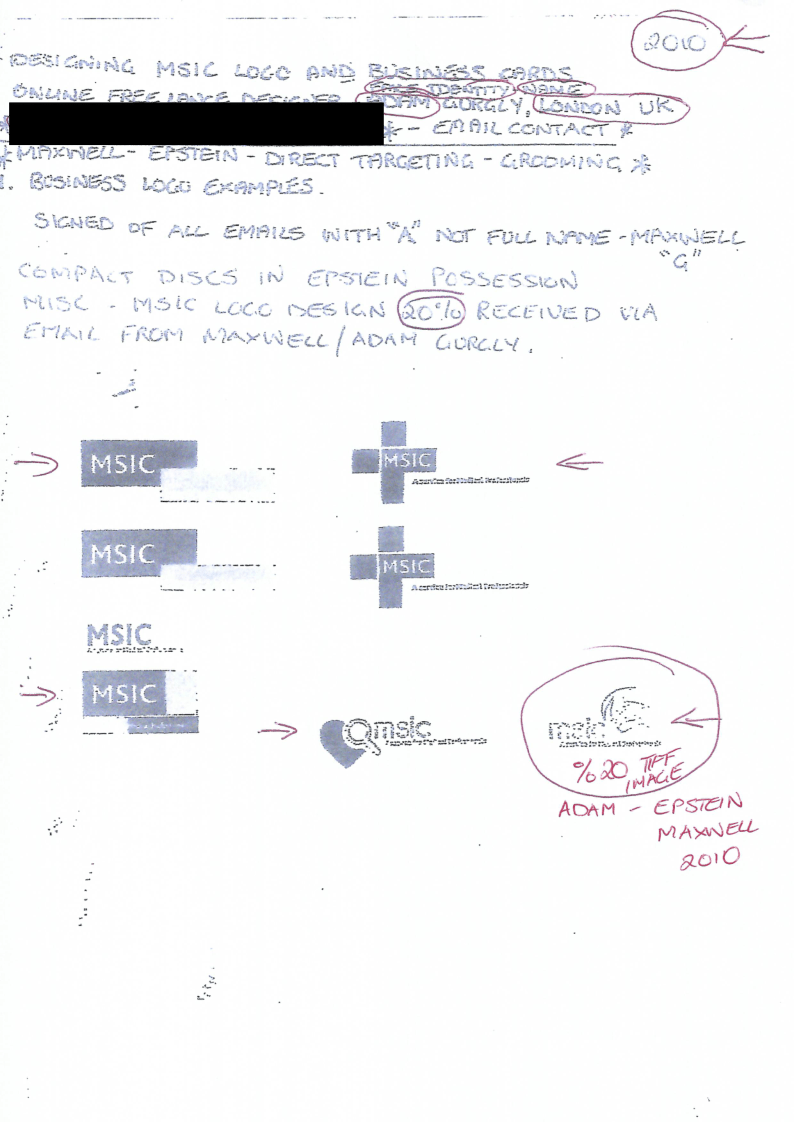 2010
DESIGNING MSIC LOGO AND BUSINESS CARDS
FAKE IDENTITY NAME
ONLINE FREELANCE DESIGNER ADAM GURGLY, LONDON UK
* * - EMAIL CONTACT *
* MAXWELL - EPSTEIN - DIRECT TARGETING - GROOMING *
1. BUSINESS LOGO EXAMPLES.
SIGNED OF ALL EMAILS WITH "A" NOT FULL NAME - MAXWELL
"G"
COMPACT DISCS IN EPSTEIN POSSESSION
MISC - MSIC LOGO DESIGN 20% RECEIVED VIA
EMAIL FROM MAXWELL/ADAM GURGLY.
MSIC
MSIC
MSIC
MSIC
MSIC
MSIC
msic
msic
%20 TIFF
IMAGE
ADAM - EPSTEIN
MAXWELL
2010